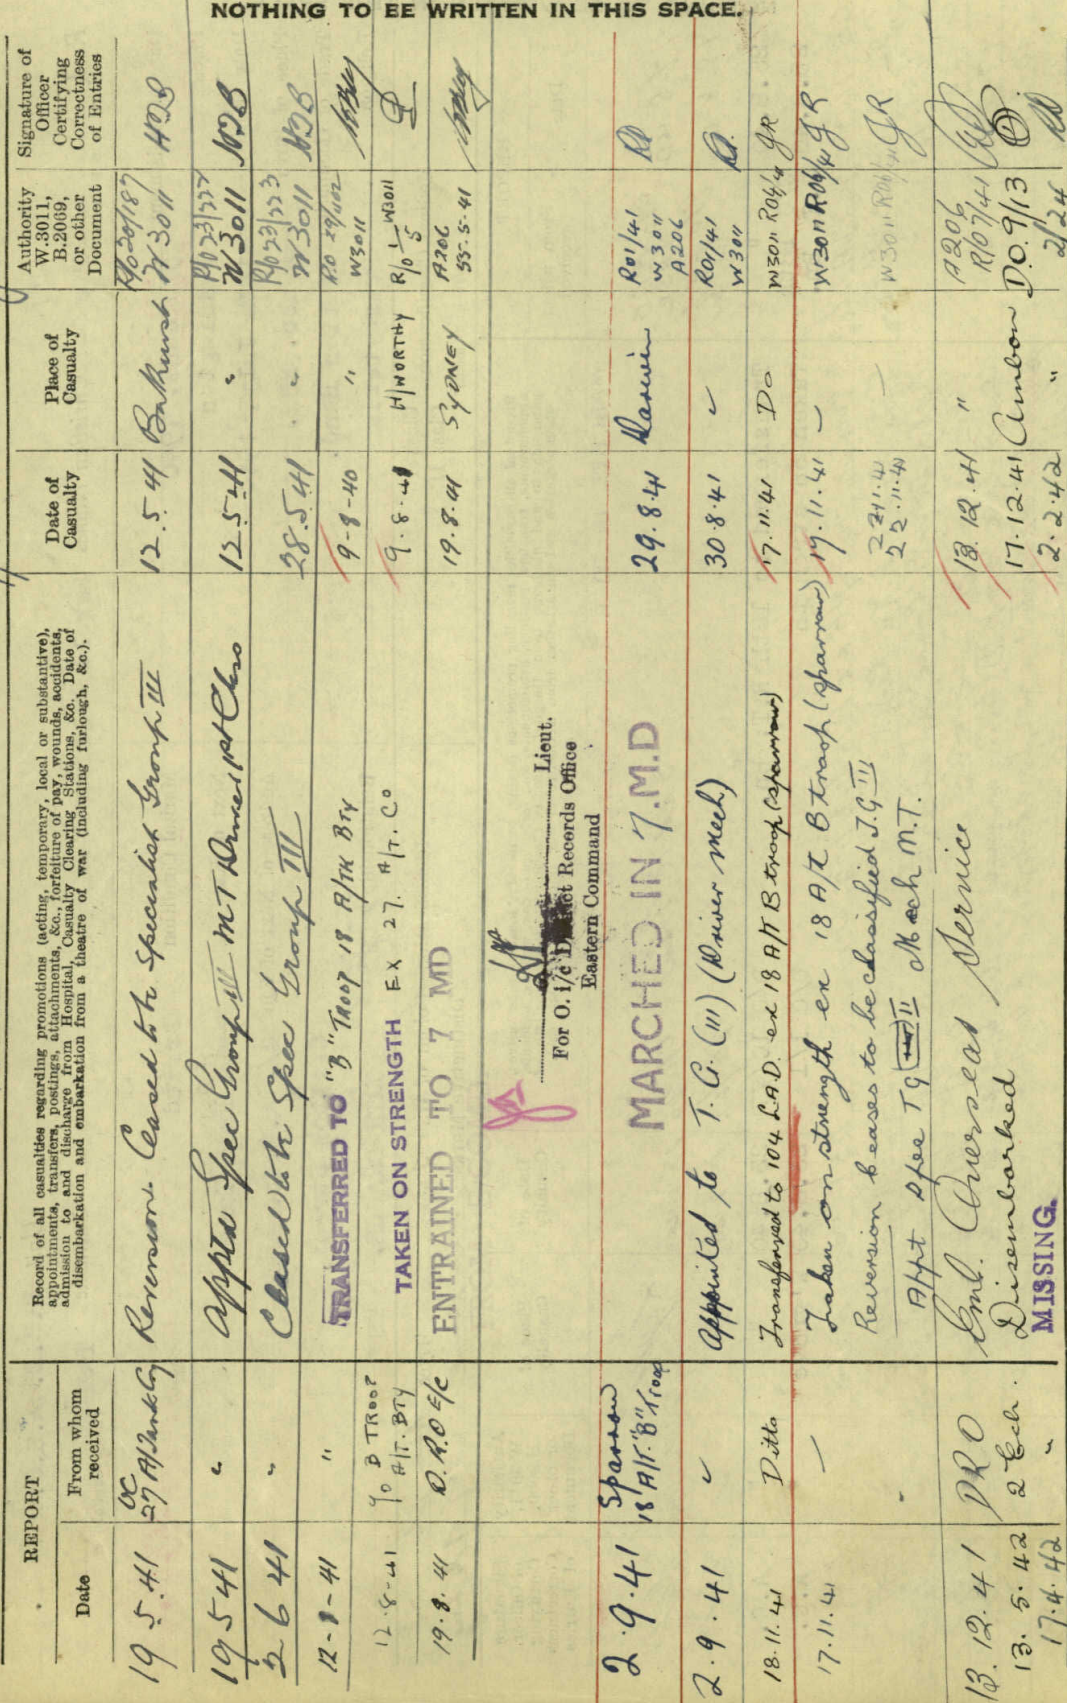 NOTHING TO BE WRITTEN IN THIS SPACE.
REPORT
Date
From whom received
Record of all casualties regarding promotions (acting, temporary, local or substantive),
appointments, transfers, postings, attachments, &c., forfeiture of pay, wounds, accidents,
admission to and discharge from Hospital, Casualty Clearing Stations, &c. Date of
disembarkation and embarkation from a theatre of war (including furlough, &c.).
Date of Casualty
Place of Casualty
Authority W.3011, B.2069, or other Document
Signature of Officer Certifying Correctness of Entries
19 5.41 OC 27 A/Tank Coy Reversion. Ceased to be Specialist Group III 12.5.41 Bathurst R/o 20/187 W 3011
19 5 41 " Appted Spec Group III MT Driver 1st Class 12.5.41 " R/o 23/222 W3011
2 6 41 " Ceased to be Spec Group III 28.5.41 " R/o 23/223 W3011
12-8-41 " TRANSFERRED TO "B" TROOP 18 A/TK BTY 9-8-40 " W3011
12-8-41 B TROOP A/T. BTY TAKEN ON STRENGTH EX 27. A/T. Co 9.8.41 H/WORTHY R/o 1/5 W3011
19.8.41 D.R.O E/C ENTRAINED TO 7 MD 19.8.41 SYDNEY A206
Lieut.
For O. i/c District Records Office
Eastern Command
2.9.41 Sparrow 18 A/T. "B" Troop MARCHED IN 7.M.D 29.8.41 Darwin R01/41 W3011 A206
2.9.41 " Appointed to T.G. (III) (Driver Mech) 30.8.41 " R01/41 W3011
18.11.41 Ditto Transferred to 104 L.A.D. ex 18 A/T B troop (sparrow) 17.11.41 Do W3011 R06/41 JR
17.11.41 — Taken on strength ex 18 A/T B troop (sparrow) 19.11.41 — W3011 R06/41 JR
Reversion ceases to be classified T.G III W3011 R06/41 JR
Appt Spec TG II Mech M.T. 22.11.41
13.12.41 DRO Emb. Overseas Service 13.12.41 " A206 R/07/41
13.5.42 2 Ech. Disembarked 17.12.41 Ambon D.O. 9/13
17.4.42 " MISSING. 2.2.42 " 2/24